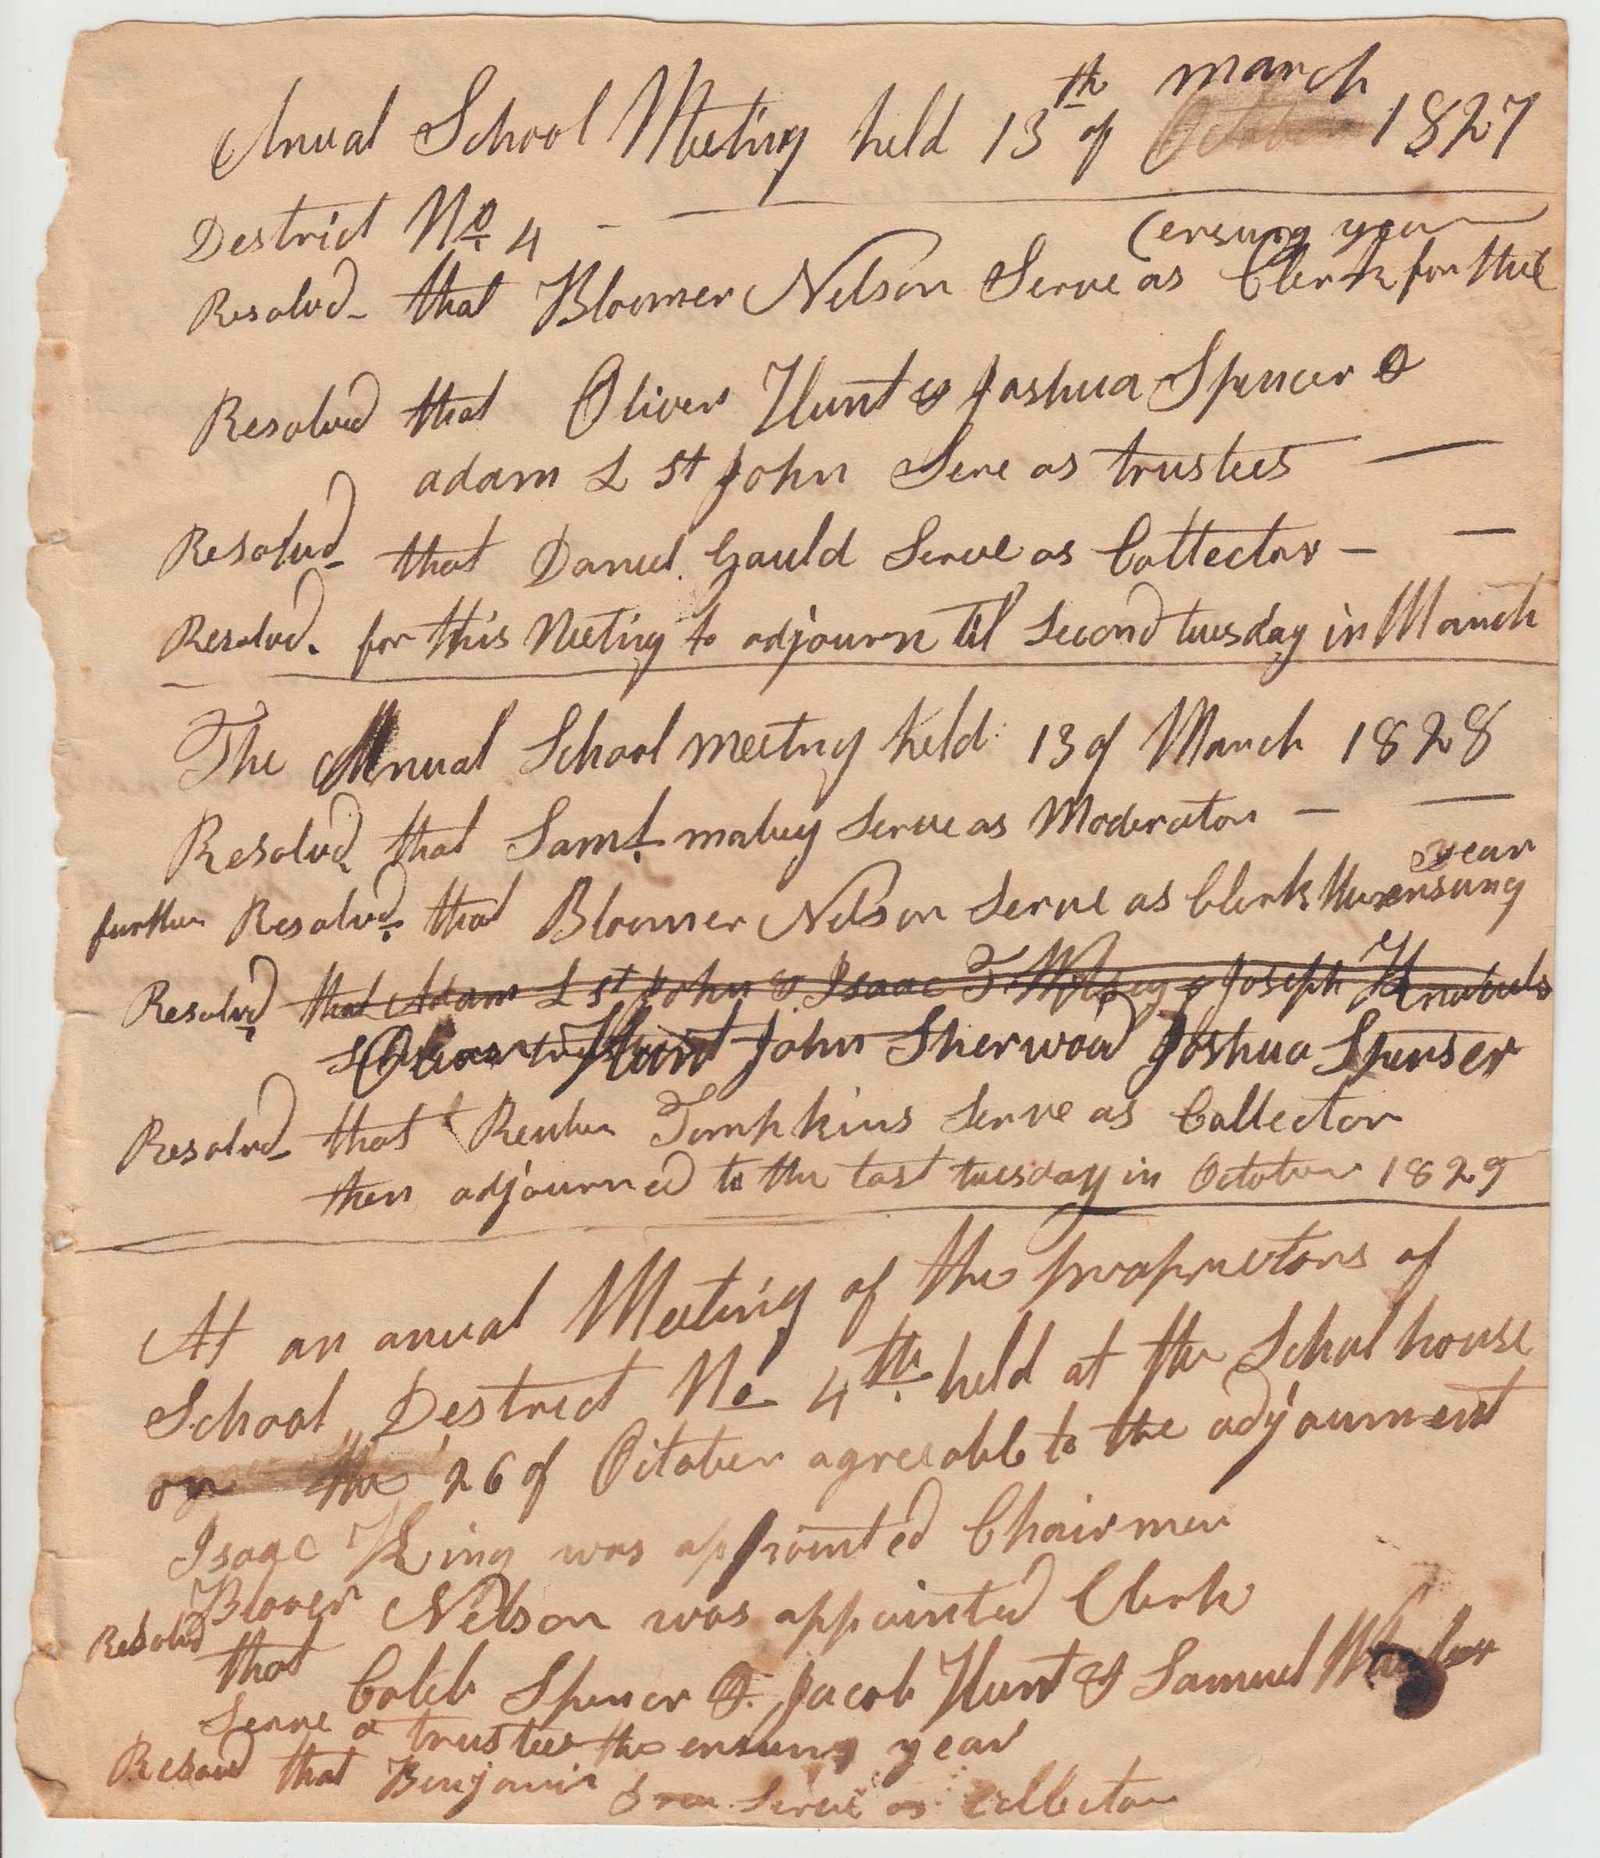 Anual School Meeting held 13th of march 1827
District No 4
ensung year
Resolvd that Bloomer Nelson Serve as Clerk for the
Resolved that Oliver Hunt & Joshua Spencer &
adam L St John Serve as trustees
Resolvd that Daniel Gauld Serve as Collector
Resolvd. for this Meeting to adjourn til Second tuesday in March
The Annual School meeting held 13 of March 1828
Resolvd that Saml. mabey Serve as Moderator
year
further Resolvd that Bloomer Nelson Serve as Clerk the ensung
Resolvd that Adam L St John & Isaac T. & Joseph
Oliver Hunt John Sherwood Joshua Spenser
Resolvd that Reuben Tompkins Serve as Collector
then adjourned to the last tuesday in October 1829
At an anual Meeting of the proprietors of
School District No 4th. held at the School house
on the 26 of October agreeable to the adjournment
Isaac King was appointed Chairmen
Blomer Nelson was appointed Clerk
Resolvd that Caleb Spencer & Jacob Hunt & Samuel
Serve a trustees the ensung year
Resolvd that Benjamin Serve as Collector